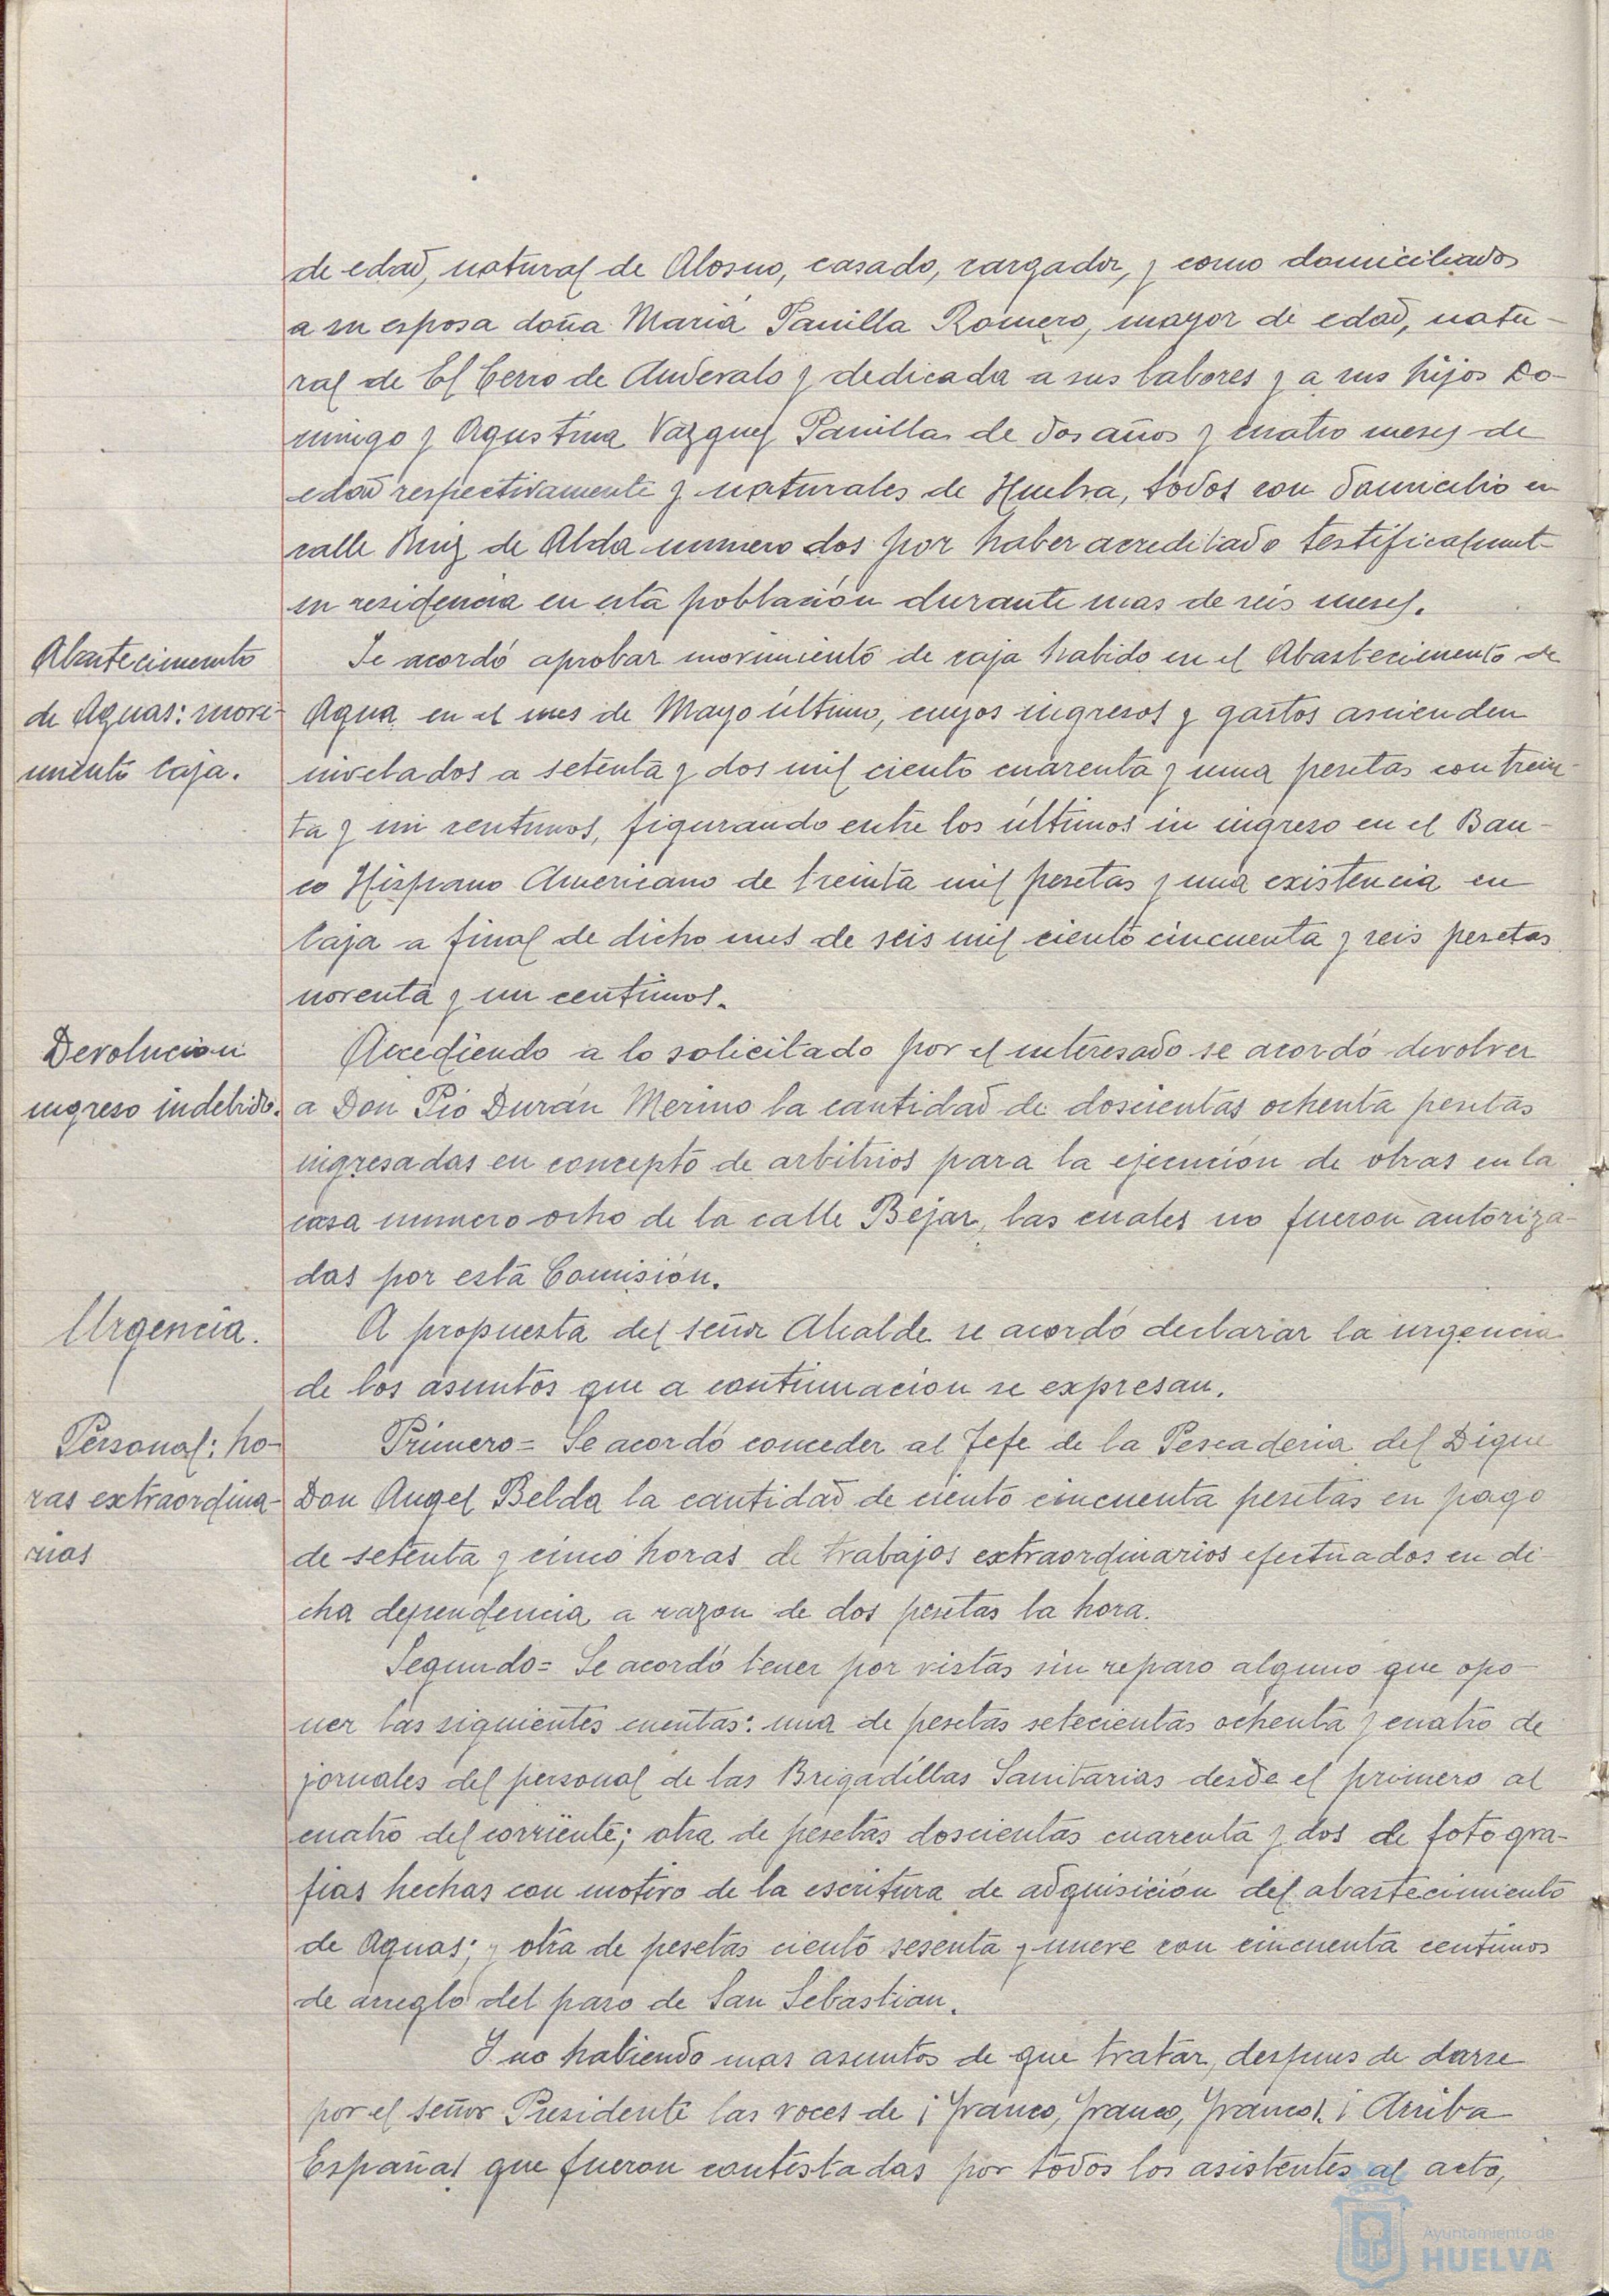 de edad, natural de Alosno, casado, cargador, y como domiciliados
a su esposa doña Maria Panilla Romero, mayor de edad, natu-
ral de El Cerro de Andevalo y dedicada a sus labores y a sus hijos Do-
mingo y Agustina Vazquez Panilla de dos años y cuatro meses de
edad respectivamente y naturales de Huelva, todos con domicilio en
calle Ruiz de Alda numero dos por haber acreditado testificalment-
su residencia en esta población durante mas de seis meses.
Abastecimiento
de Aguas: movi-
miento Caja.
Se acordó aprobar movimiento de caja habido en el Abastecimiento de
Agua en el mes de Mayo último, cuyos ingresos y gastos ascienden
nivelados a setenta y dos mil ciento cuarenta y una pesetas con trein-
ta y un centimos, figurando entre los últimos un ingreso en el Ban-
co Hispano Americano de treinta mil pesetas y una existencia en
Caja a final de dicho mes de seis mil ciento cincuenta y seis pesetas
noventa y un centimos.
Devolucion
ingreso indebido.
Accediendo a lo solicitado por el interesado se acordó devolver
a Don Pio Durán Merino la cantidad de doscientas ochenta pesetas
ingresadas en concepto de arbitrios para la ejecución de obras en la
casa numero ocho de la calle Bejar, las cuales no fueron autoriza-
das por esta Comisión.
Urgencia.
A propuesta del señor Alcalde se acordó declarar la urgencia
de los asuntos que a continuacion se expresan.
Personal: ho-
ras extraordina-
rias
Primero= Se acordó conceder al Jefe de la Pescaderia del Dique
Don Angel Belda la cantidad de ciento cincuenta pesetas en pago
de setenta y cinco horas de trabajos extraordinarios efectuados en di-
cha dependencia a razon de dos pesetas la hora.
Segundo= Se acordó tener por vistas sin reparo alguno que opo-
ner las siguientes cuentas: una de pesetas setecientas ochenta y cuatro de
jornales del personal de las Brigadillas Sanitarias desde el primero al
cuatro del corriente; otra de pesetas doscientas cuarenta y dos de fotogra-
fias hechas con motivo de la escritura de adquisición del abastecimiento
de Aguas; y otra de pesetas ciento sesenta y nueve con cincuenta centimos
de arreglo del paso de San Sebastian.
Y no habiendo mas asuntos de que tratar, despues de darse
por el señor Presidente las voces de ¡Franco, Franco, Franco!. ¡Arriba
España! que fueron contestadas por todos los asistentes al acto,
Ayuntamiento de
HUELVA